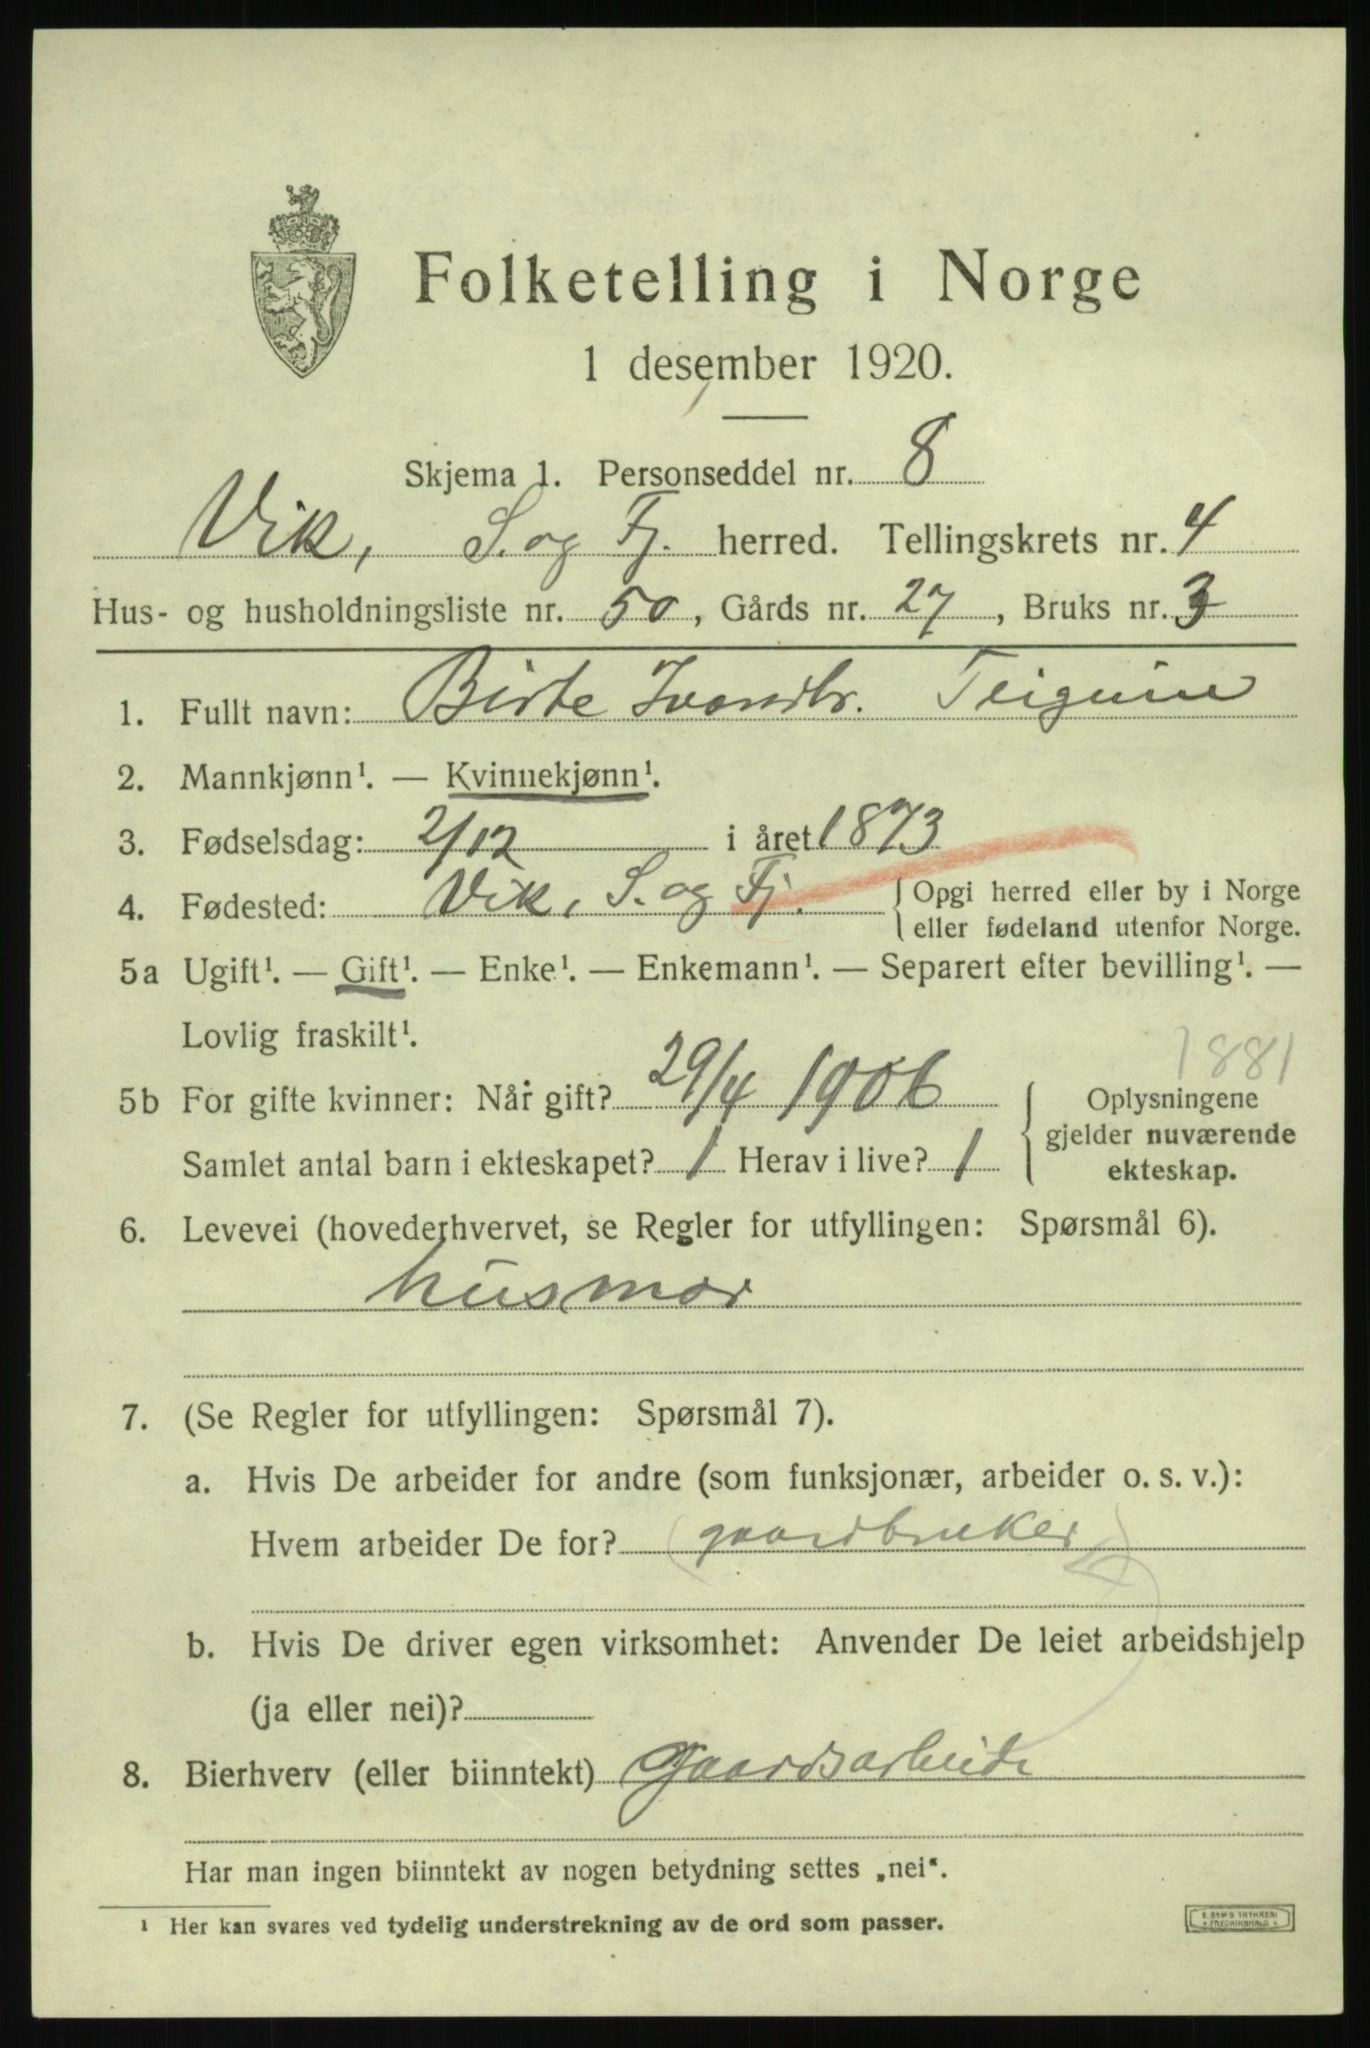 Folketelling i Norge
1 desember 1920.
Skjema 1. Personseddel nr. 8
Vik, S. og Fj. herred. Tellingskrets nr. 4
Hus- og husholdningsliste nr. 50, Gårds nr. 27, Bruks nr. 3
1. Fullt navn: Birte Ivarsdtr. Teigum
2. Mannkjønn¹. — Kvinnekjønn¹.
3. Fødselsdag: 2/12 i året 1873
4. Fødested: Vik, S. og Fj. { Opgi herred eller by i Norge
eller fødeland utenfor Norge.
5a Ugift¹. — Gift¹. — Enke¹. — Enkemann¹. — Separert efter bevilling¹. —
Lovlig fraskilt¹.
1881
5b For gifte kvinner: Når gift? 29/4 1906 { Oplysningene
gjelder nuværende
Samlet antal barn i ekteskapet? 1 Herav i live? 1
ekteskap.
6. Levevei (hovederhvervet, se Regler for utfyllingen: Spørsmål 6).
husmor
7. (Se Regler for utfyllingen: Spørsmål 7).
a. Hvis De arbeider for andre (som funksjonær, arbeider o. s. v.):
Hvem arbeider De for? (gaardbruker)
b. Hvis De driver egen virksomhet: Anvender De leiet arbeidshjelp
(ja eller nei)?
8. Bierhverv (eller biinntekt) Gaardsarbeide
Har man ingen biinntekt av nogen betydning settes „nei“.
¹ Her kan svares ved tydelig understrekning av de ord som passer.
E. SEM'S TRYKKERI
FREDRIKSHALD